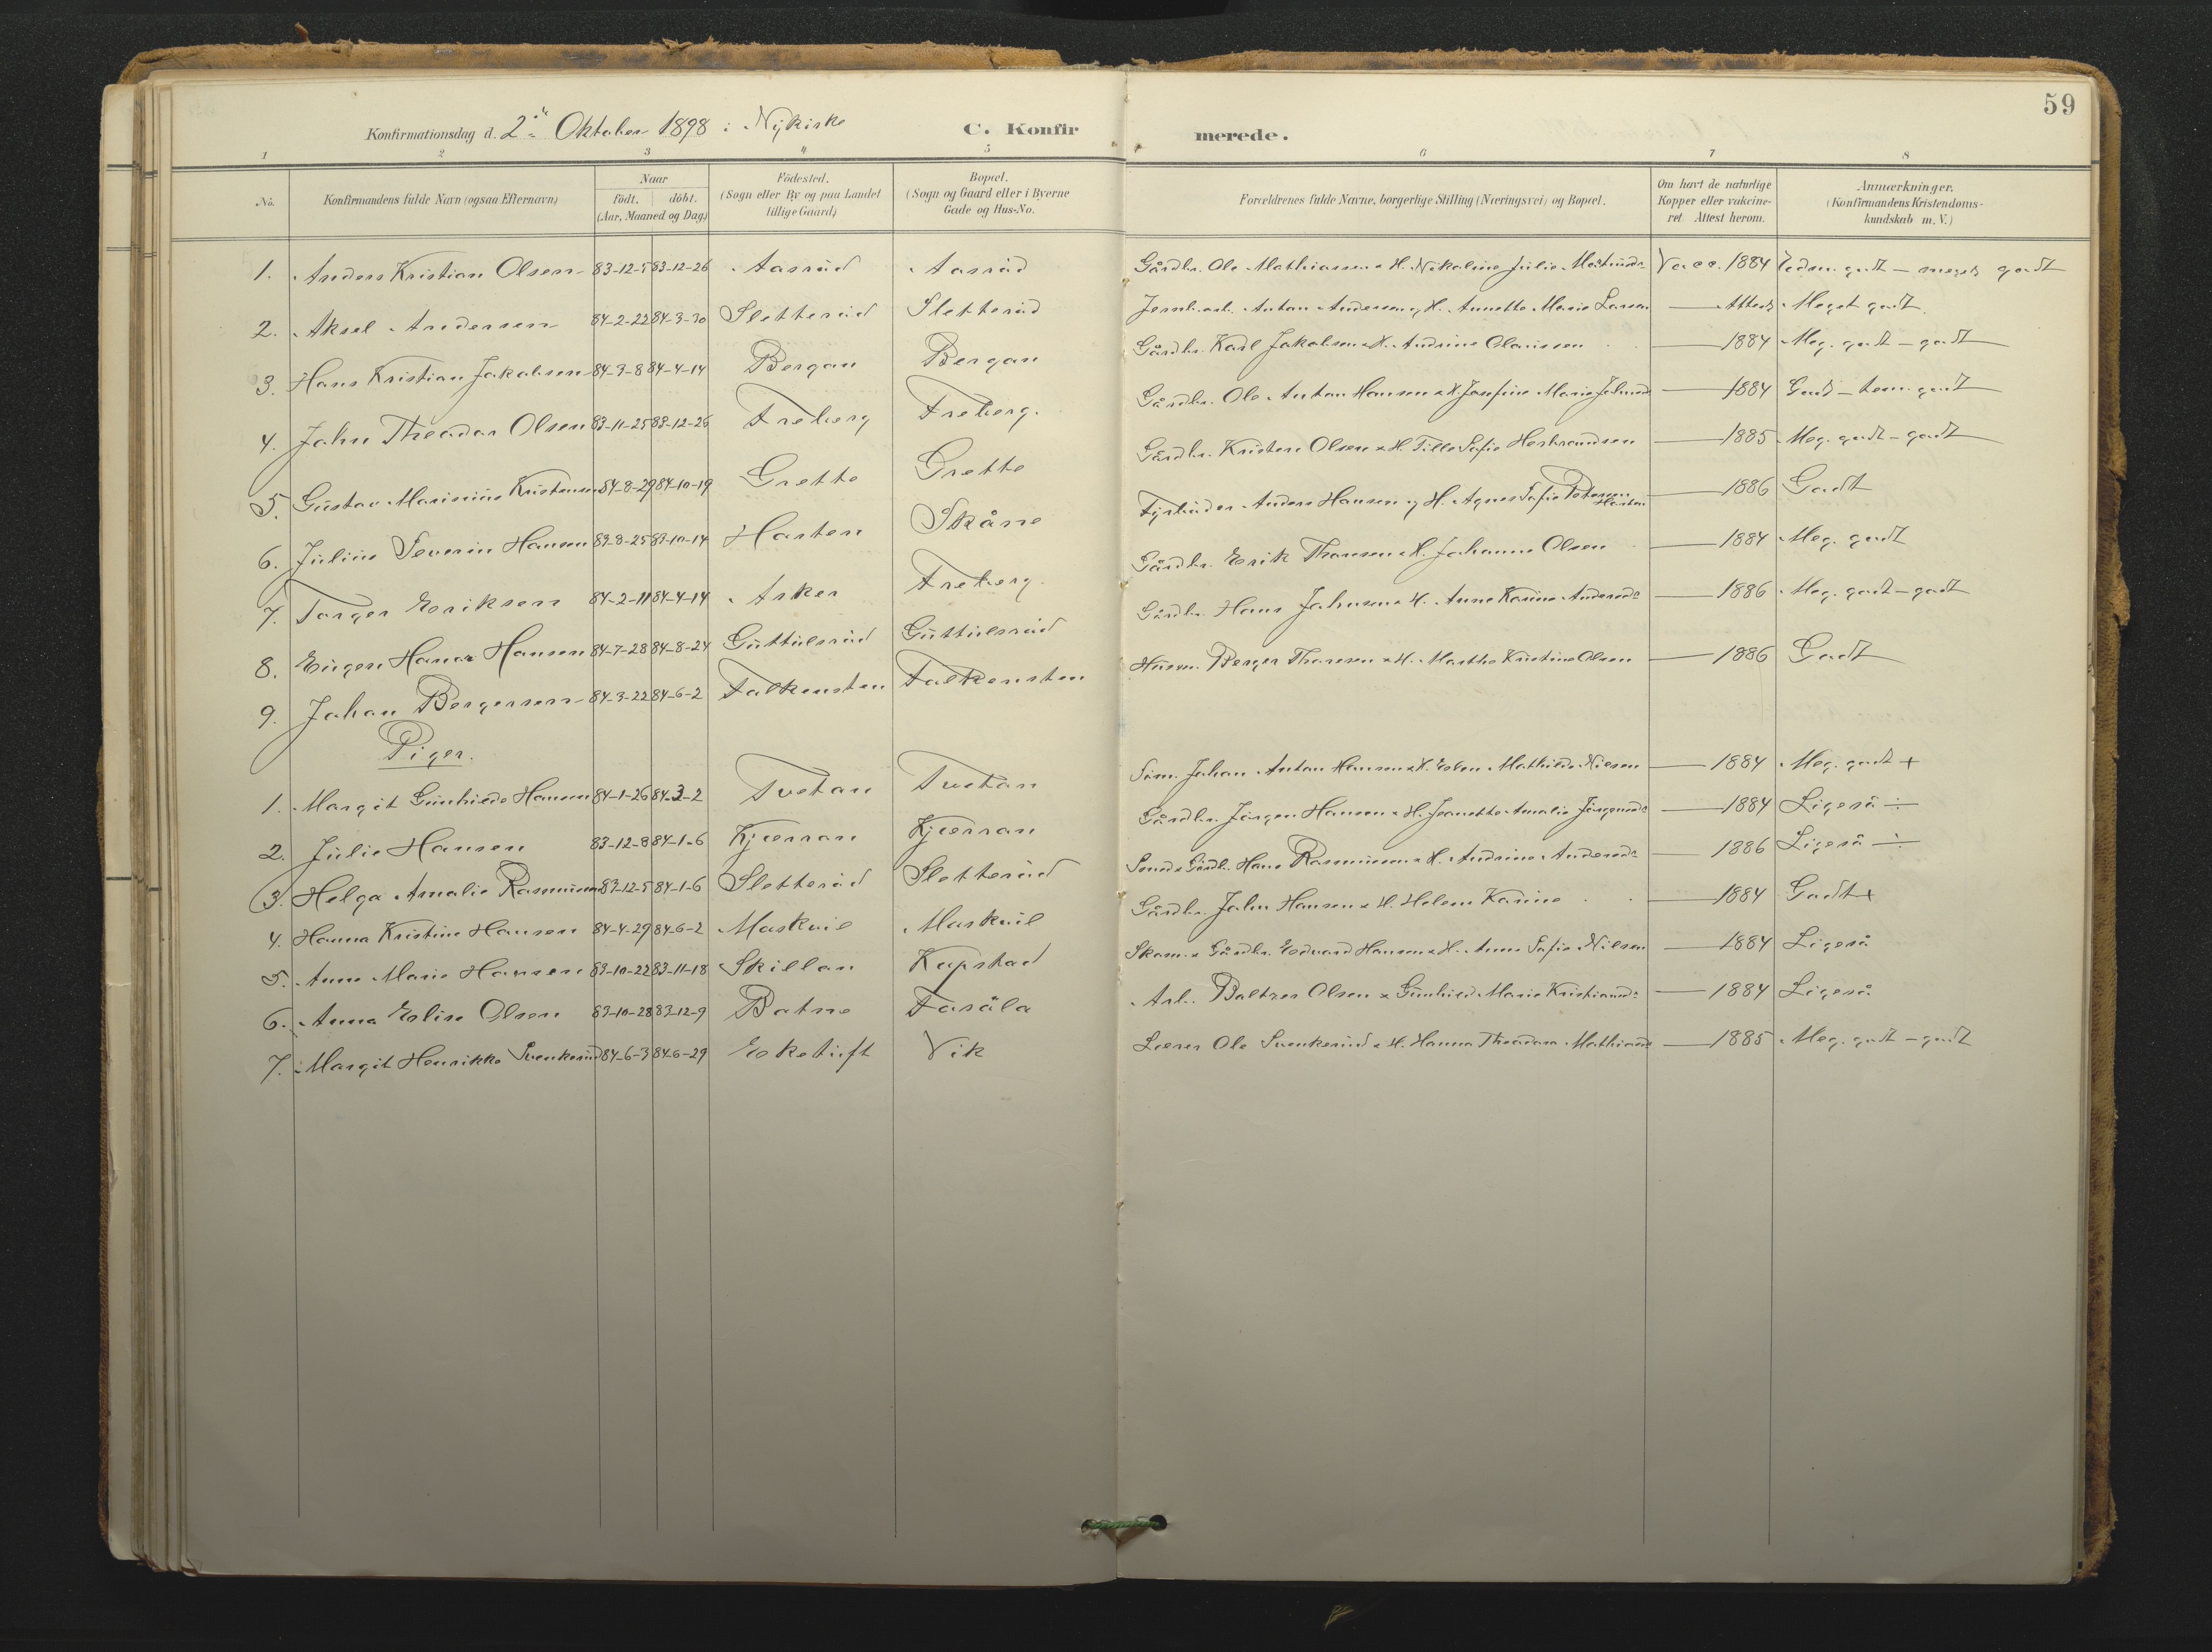 59
Konfirmationsdag d. 2den Oktober 1898 i Nykirke C. Konfirmerede.
1 2 3 4 5 6 7 8
No. Konfirmandens fulde Navn (ogsaa Efternavn) Naar födt. döbt. (Aar, Maaned og Dag) Födested. (Sogn eller By og paa Landet tillige Gaard) Bopæl. (Sogn og Gaard eller i Byerne Gade og Hus-No. Forældrenes fulde Navne, borgerlige Stilling (Næringsvei) og Bopæl. Om havt de naturlige Kopper eller vakcineret Attest herom. Anmærkninger. (Konfirmandens Kristendomskundskab m. V.)
1. Anders Kristian Olsen 83-12-5 83-12-26 Aasrud Aasrud Gårdbr. Ole Mathiassen & H. Nikoline Julie Vacc. 1884 godt - meget godt
2. Aksel Andersen 84-2-22 84-3-30 Sletterud Sletterud Jernb.arb. Anton Andersen og H. Annette Marie Larsen — Attest Meget godt.
3. Hans Kristian Jakobsen 84-3-8 84-4-14 Bergan Bergan Gårdbr. Karl Jakobsen & H. Andrine Olaussen — 1884 Meg. godt - godt
4. John Theodor Olsen 83-11-25 83-12-26 Freberg Freberg. Gårdbr. Ole Anton Hansen & H. Josefine Marie Johnsd — 1884 Godt - tem. godt
5. Gustav Marinius Kristensen 84-8-29 84-10-19 Grette Grette Gårdbr. Kristen Olsen & H. Tille Sofie Herbrandsen — 1885 Meg. godt - godt
6. Julius Severin Hansen 83-8-25 83-10-14 Horten Skåne Fyrbøder Anders Hansen og H. Agnes Sofie Petersen Horten — 1886 Godt
7. Torger Eriksen 84-2-11 84-4-14 Asker Freberg. Gårdbr. Erik Thoresen & H. Johanne Olsen — 1884 Meg. godt
8. Eugen Hansen 84-7-28 84-8-24 Guttulsrud Guttulsrud Gårdbr. Hans Johnsen & H. Anne Karine Andersdr — 1886 Meg. godt - godt
9. Johan Bergersen 84-3-22 84-6-2 Falkensten Falkensten Husm. Berger Thoresen & H. Marthe Kristine Olsen — 1886 Godt
Piger.
1. Margit Gunhilde Hansen 84-1-26 84-3-2 Tvetan Tvetan Søm. Johan Anton Hansen & H. Ellen Mathilde Nilsen — 1884 Meg. godt +
2. Julie Hansen 83-12-8 84-1-6 Kjærran Kjærran Gårdbr. Jörgen Hansen & H. Jeanette Amalie Jörgensdr — 1884 Ligeså ÷
3. Helga Amalie Rasmussen 83-12-5 84-1-6 Sletterud Sletterud Smed & Gårdbr. Hans Rasmussen & H. Andrine Andersdr — 1886 Ligeså ÷
4. Hanna Kristine Hansen 84-4-29 84-6-2 Maskvil Maskvil Gårdbr. John Hansen & H. Helene Karine — 1884 Godt +
5. Anne Marie Hansen 83-10-22 83-11-18 Skillan Kopstad Skom. & Gårdbr. Edvard Hansen & H. Anne Sofie Nilsen — 1884 Ligeså
6. Anna Elise Olsen 83-10-28 83-12-9 Batne Fosåla Arb. Baltzer Olsen & Gunhild Marie Kristiansdr — 1884 Ligeså
7. Margit Henrikke Svenkerud 84-6-3 84-6-29 Eketuft Vik Lærer Ole Svenkerud & H. Hanna Theodora Mathiasd — 1885 Meg. godt - godt